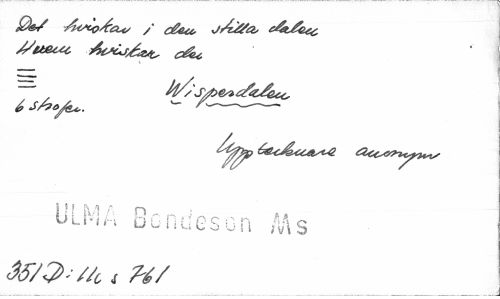 Det hviskar i den stilla dalen
Hvem hviskar der
Wisperdalen
6 strofer.
Upptecknare anonym
ULMA Bondeson Ms
351 D: III s 761